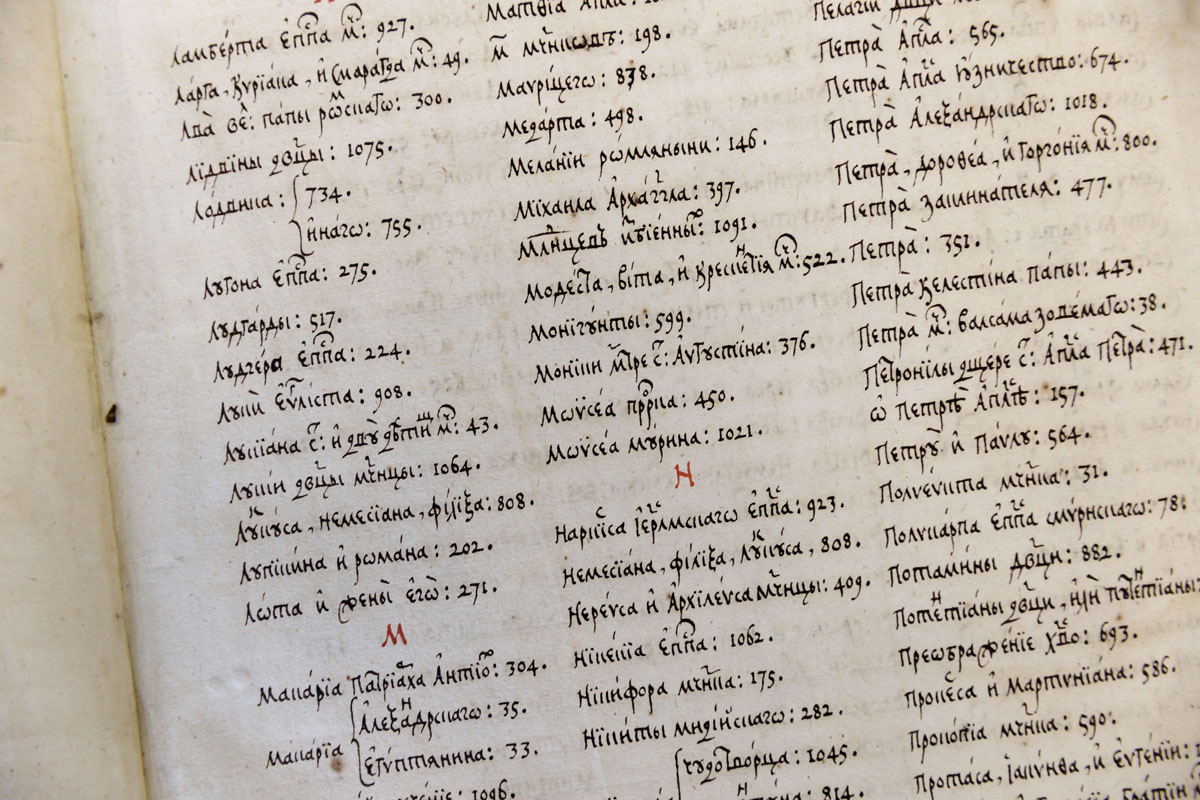 Ламберта Еп҃па м҃: 927.
Ларга, Курїана, и Смарагда м҃: 49.
Лва ве҃: папы римскагѡ: 300.
Лїдвїны двц҃ы: 1075.
Лодвика: 734.
и инагѡ: 755.
Лугона Еп҃па: 275.
Лудгарды: 517.
Лудгера Еп҃па: 224.
Луки Еѵ҃листа: 908.
Лукїана с҃: и двꙋ дѣтищ м҃: 43.
Лукїи двц҃ы мч҃нцы: 1064.
Лукїуса, Немесїана, Филїѯа: 808.
Лупїкина и Романа: 202.
Лѡта и жены егѡ: 271.
М
Макарїа Патрїарха Антїо҃: 304.
Макарїа
Алеѯандрскагѡ: 35.
Египтянина: 33.
1096.
м҃ мч҃никѡвъ: 198.
Маврїцегѡ: 838.
Медарта: 498.
Меланїи римляныни: 146.
Мїхаила Арха́гг҃ла: 397.
Мл҃нцевъ избїенны҃: 1091.
Модеста, Вїта, и Крескентїа м҃: 522.
Монїгунты: 599.
Моники м҃тре с҃: Августїна: 376.
Мѡѵсеа пр҃рка: 450.
Мѡѵсеа мурина: 1021.
Н
Наркїса Іер҃лмскагѡ еп҃па: 923.
Немесїана, Филїѯа, Лукїуса, 808.
Нереуса и Архїлеуса мч҃нцы: 409.
Нїкитїа Еп҃па: 1062.
Нїкифора мч҃нка: 175.
Нїкиты мидїйскагѡ: 282.
чудотворца: 1045.
814.
Петра Ап҃ла: 565.
Петра Ап҃ла юзничество: 674.
Петра Алеѯандрскагѡ: 1018.
Петра, Доротеа, и Горгонїа м҃: 800.
Петра заклинателя: 477.
Петра: 351.
Петра Келестїна папы: 443.
Петра м҃: валсамазодемагѡ: 38.
Петронїлы дщере с҃: Ап҃ла Петра: 471.
ѡ Петрѣ Ап҃лѣ: 157.
Петру и Павлу: 564.
Полѵеѵкта мч҃нка: 31.
Полѵкарпа Еп҃па смѵрнскагѡ: 78.
Потамины двц҃и: 882.
Потентїаны двц҃и, или Пудентїаны:
Преѡбраженїе Хв҃о: 693.
Прокеса и Мартинїана: 586.
Прокопїа мч҃нка: 590.
Протаса, Іакинѳа, и Евгенїи: